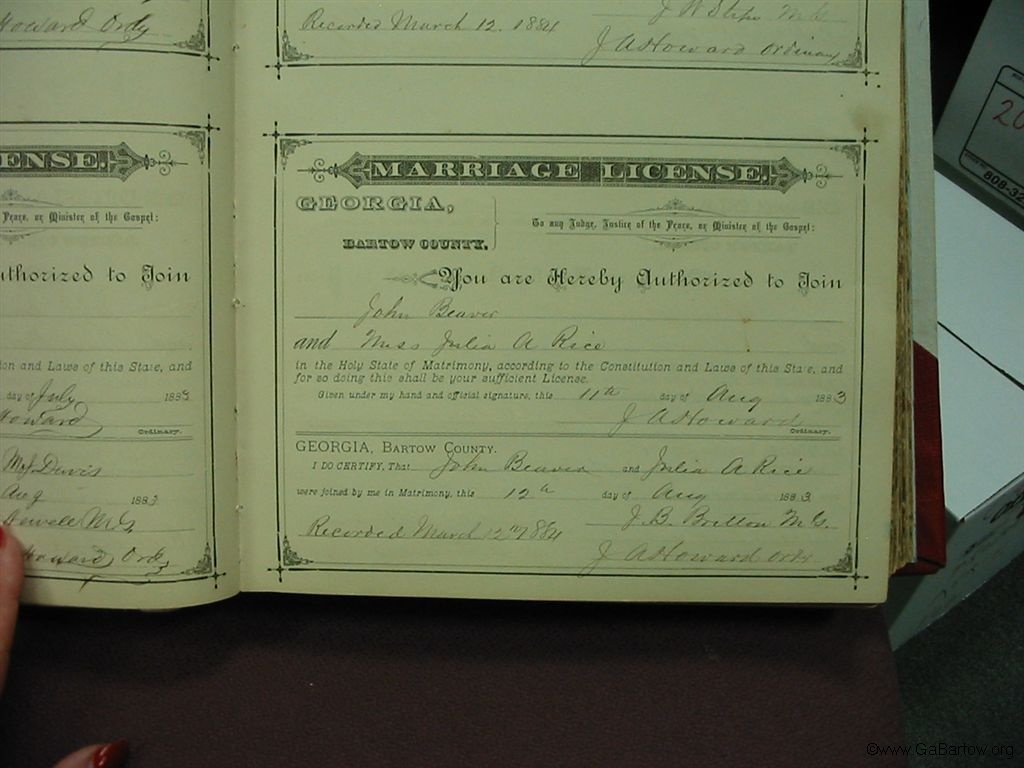 Howard Ordy
Recorded March 12. 1884
J A Howard Ordinary
ENSE.
Peace, or Minister of the Gospel:
uthorized to Join
ion and Laws of this State, and
day of July 188
Howard
Ordinary.
Aug 188
Howard Ordy
MARRIAGE LICENSE.
GEORGIA,
BARTOW COUNTY.
To any Judge, Justice of the Peace, or Minister of the Gospel:
You are Hereby Authorized to Join
John Beaver
and Miss Julia A Rice
in the Holy State of Matrimony, according to the Constitution and Laws of this State, and
for so doing this shall be your sufficient License.
Given under my hand and official signature, this 11th day of Aug 1883
J A Howard
Ordinary.
GEORGIA, BARTOW COUNTY.
I DO CERTIFY, That John Beaver and Julia A Rice
were joined by me in Matrimony, this 12th day of Aug 1883
J. B. M. G.
Recorded March 12th 1884
J A Howard Ordy
20
808-32
©www.GaBartow.org